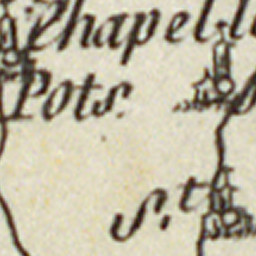 Chapel.le
Pots.
S.t